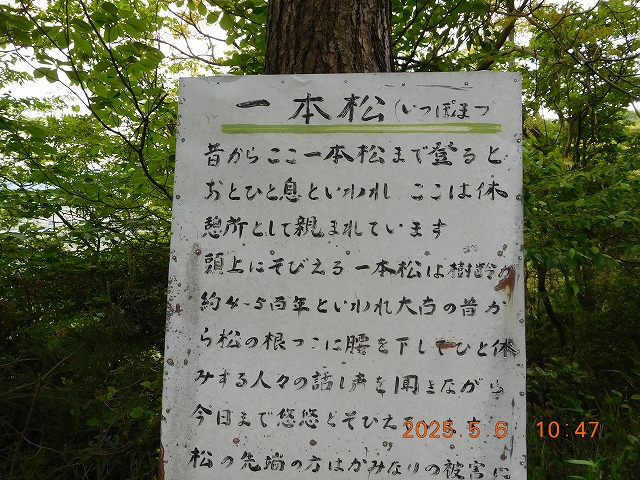 一本松(いっぽまつ
昔からここ一本松まで登ると
おとひと息といわれ ここは休
憩所として親まれています
頭上にそびえる一本松は樹齢が
約4~5百年といわれ大古の昔か
ら松の根っこに腰を下してひと休
みする人々の話し声を聞きながら
今日まで悠悠とそびえ
松の先端の方はかみなりの被害に
2025.5.6 10:47